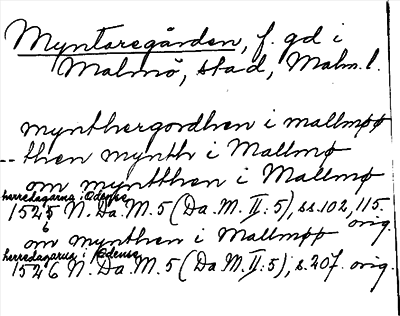 Myntaregården, f. gd i
Malmö, stad, Malm. l.
mynthergordhen i mallmøø
-- then mynth i Mallmø
om myntthen i Mallmø
herredagarna i Odense
1545 N. Da. M. 5 (Da. M. II: 5), ss. 102, 115.
6
orig.
om mynthen i Mallmøø
herredagarna i Odense
1526 N. Da. M. 5 (Da. M. II: 5), s. 207. orig.